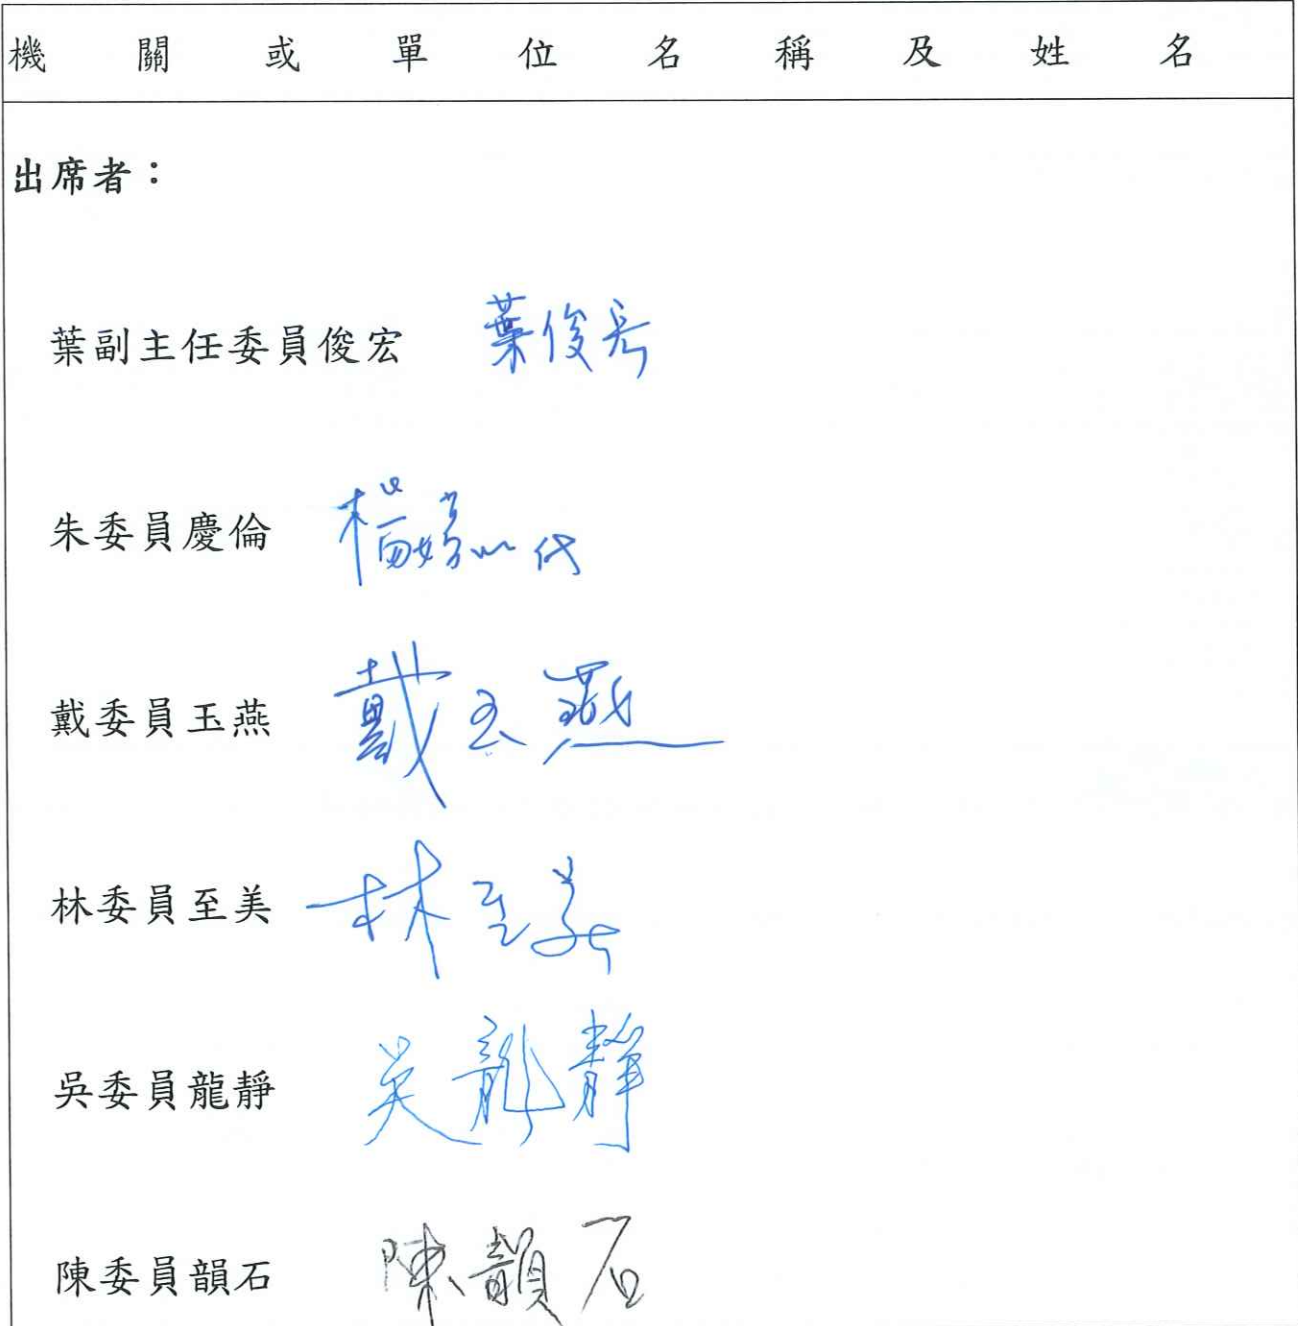 機關或單位名稱及姓名
出席者：
葉副主任委員俊宏 葉俊宏
朱委員慶倫 楊 代
戴委員玉燕 戴玉燕
林委員至美 林至美
吳委員龍靜 吳龍靜
陳委員韻石 陳韻石